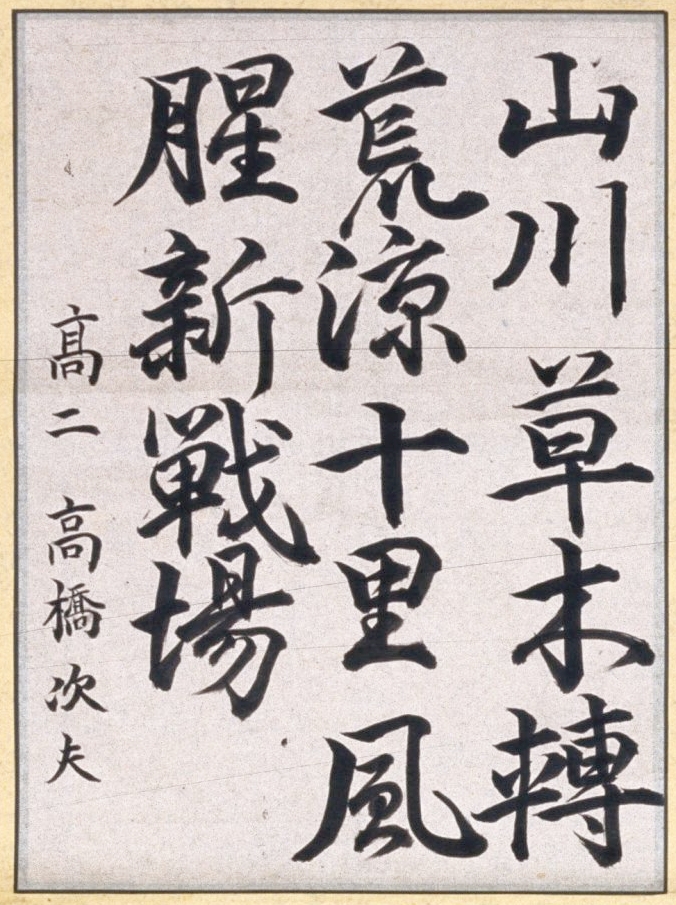 山川草木轉
荒涼十里風
腥新戦場
高二 高橋次夫